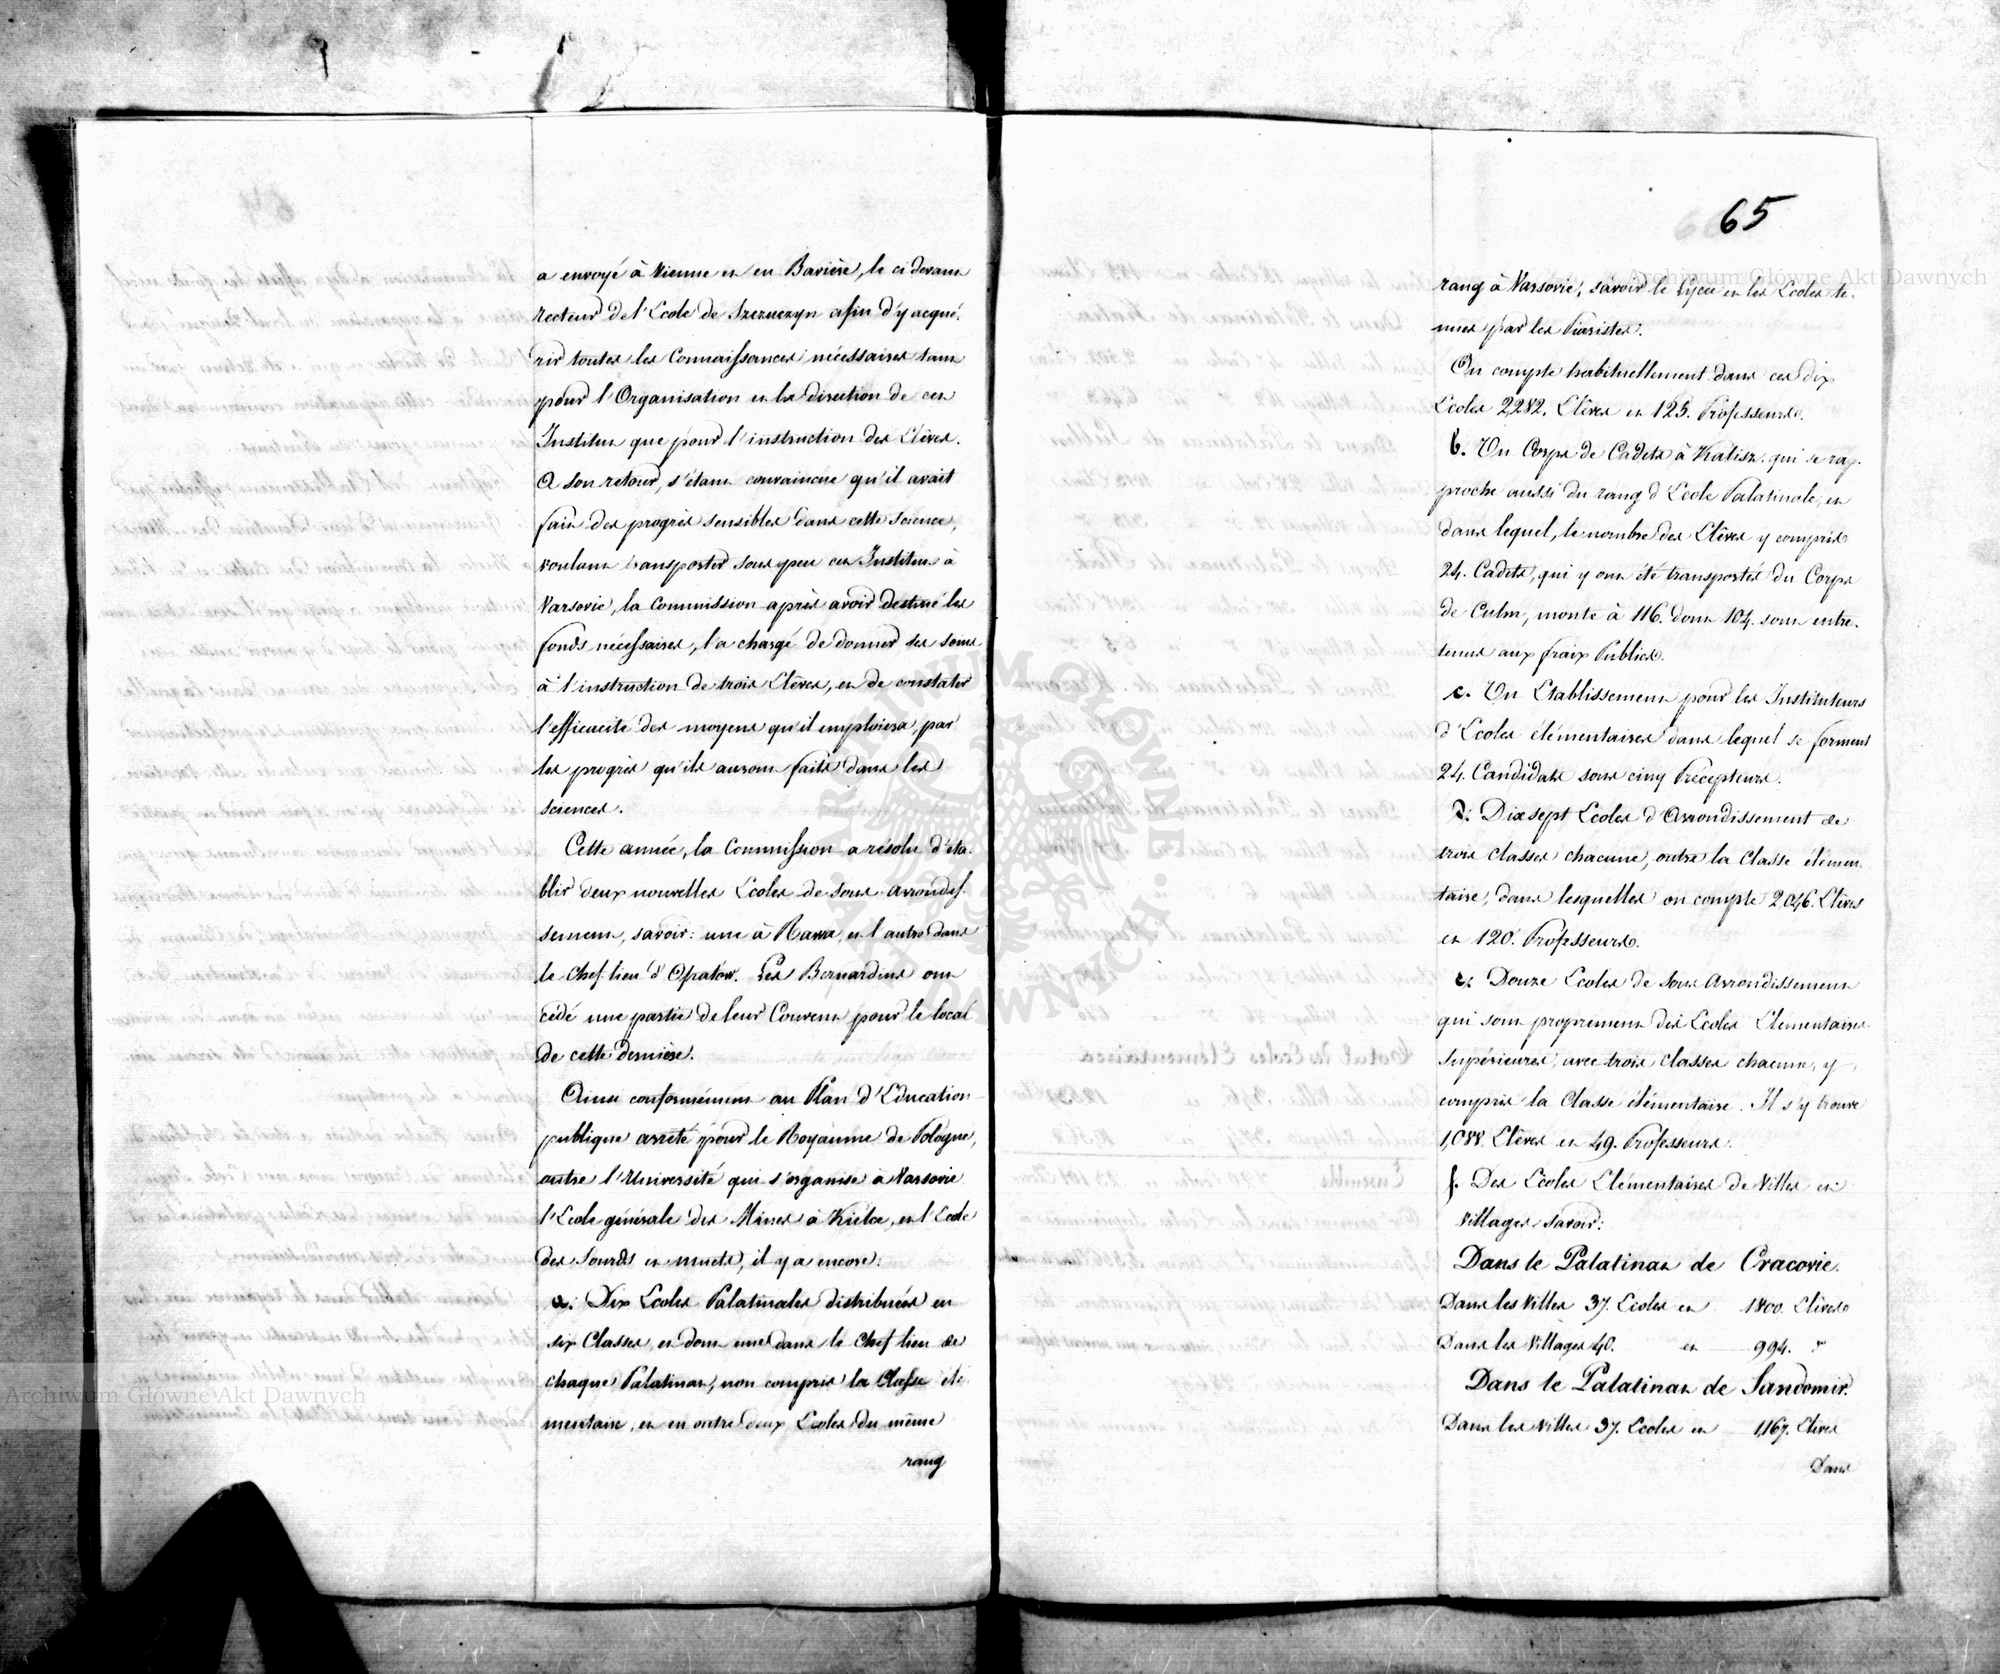 a envoyé à Vienne et en Bavière, le ci devant
recteur de l'Ecole de Szczuczyn afin d'y acqué-
rir toutes les Connaissances nécessaires tant
pour l'Organisation et la direction de cet
Institut que pour l'instruction des Elèves.
A son retour, s'étant convaincue qu'il avait
fait des progrès sensibles dans cette science,
voulant transporter sous peu cet Institut à
Varsovie, la Commission après avoir destiné les
fonds nécessaires, l'a chargé de donner ses soins
à l'instruction de trois Elèves, et de constater
l'efficacité des moyens qu'il emploiera, par
les progrès qu'ils auront faits dans les
sciences.
Cette année, la Commission a résolu d'éta-
blir deux nouvelles Ecoles de sous-arrondis-
sement, savoir: une à Rawa, et l'autre dans
le Chef lieu d'Opatow. Les Bernardins ont
cédé une partie de leur Couvent pour le local
de cette dernière.
Ainsi conformément au Plan d'Education
publique arrêté pour le Royaume de Pologne,
outre l'Université qui s'organise à Varsovie
l'Ecole générale des Mines à Kielce, et l'Ecole
des Sourds et muets, il y a encore:
a. Dix Ecoles Palatinales distribuées en
six Classes, et dont une dans le Chef lieu de
chaque Palatinat, non compris la Classe élé-
mentaire, et en outre deux Ecoles du même
rang
65
rang à Varsovie, savoir le Lycée et les Ecoles te-
nues par les Piaristes.
On compte habituellement dans ces dix
Ecoles 2282. Elèves et 125. Professeurs.
b. Un Corps de Cadets à Kalisz: qui se rap-
proche aussi du rang d'Ecole Palatinale, et
dans lequel, le nombre des Elèves y compris
24. Cadets, qui y ont été transportés du Corps
de Culm, monte à 116. dont 104. sont entre-
tenus aux fraix Publics.
c. Un Etablissement pour les Instituteurs
d'Ecoles élémentaires dans lequel se forment
24. Candidats sous cinq Précepteurs.
d. Dix sept Ecoles d'Arrondissement de
trois classes chacune, outre la Classe élémen-
taire, dans lesquelles on compte 2,046. Elèves
et 120. Professeurs.
e. Douze Ecoles de Sous Arrondissement
qui sont proprement dit Ecoles Elementaires
Supérieures, avec trois classes chacune, y
compris la Classe élémentaire. Il s'y trouve
1,088 Elèves et 49. Professeurs.
f. Des Ecoles Elémentaires de Villes et
Villages savoir:
Dans le Palatinat de Cracovie.
Dans les Villes 37. Ecoles et 1800. Elèves
Dans les Villages 40. et 994. "
Dans le Palatinat de Sandomir.
Dans les Villes 37. Ecoles et 1,167. Elèves
Dans
Archiwum Główne Akt Dawnych
Archiwum Główne Akt Dawnych
ARCHIWUM GŁÓWNE AKT DAWNYCH